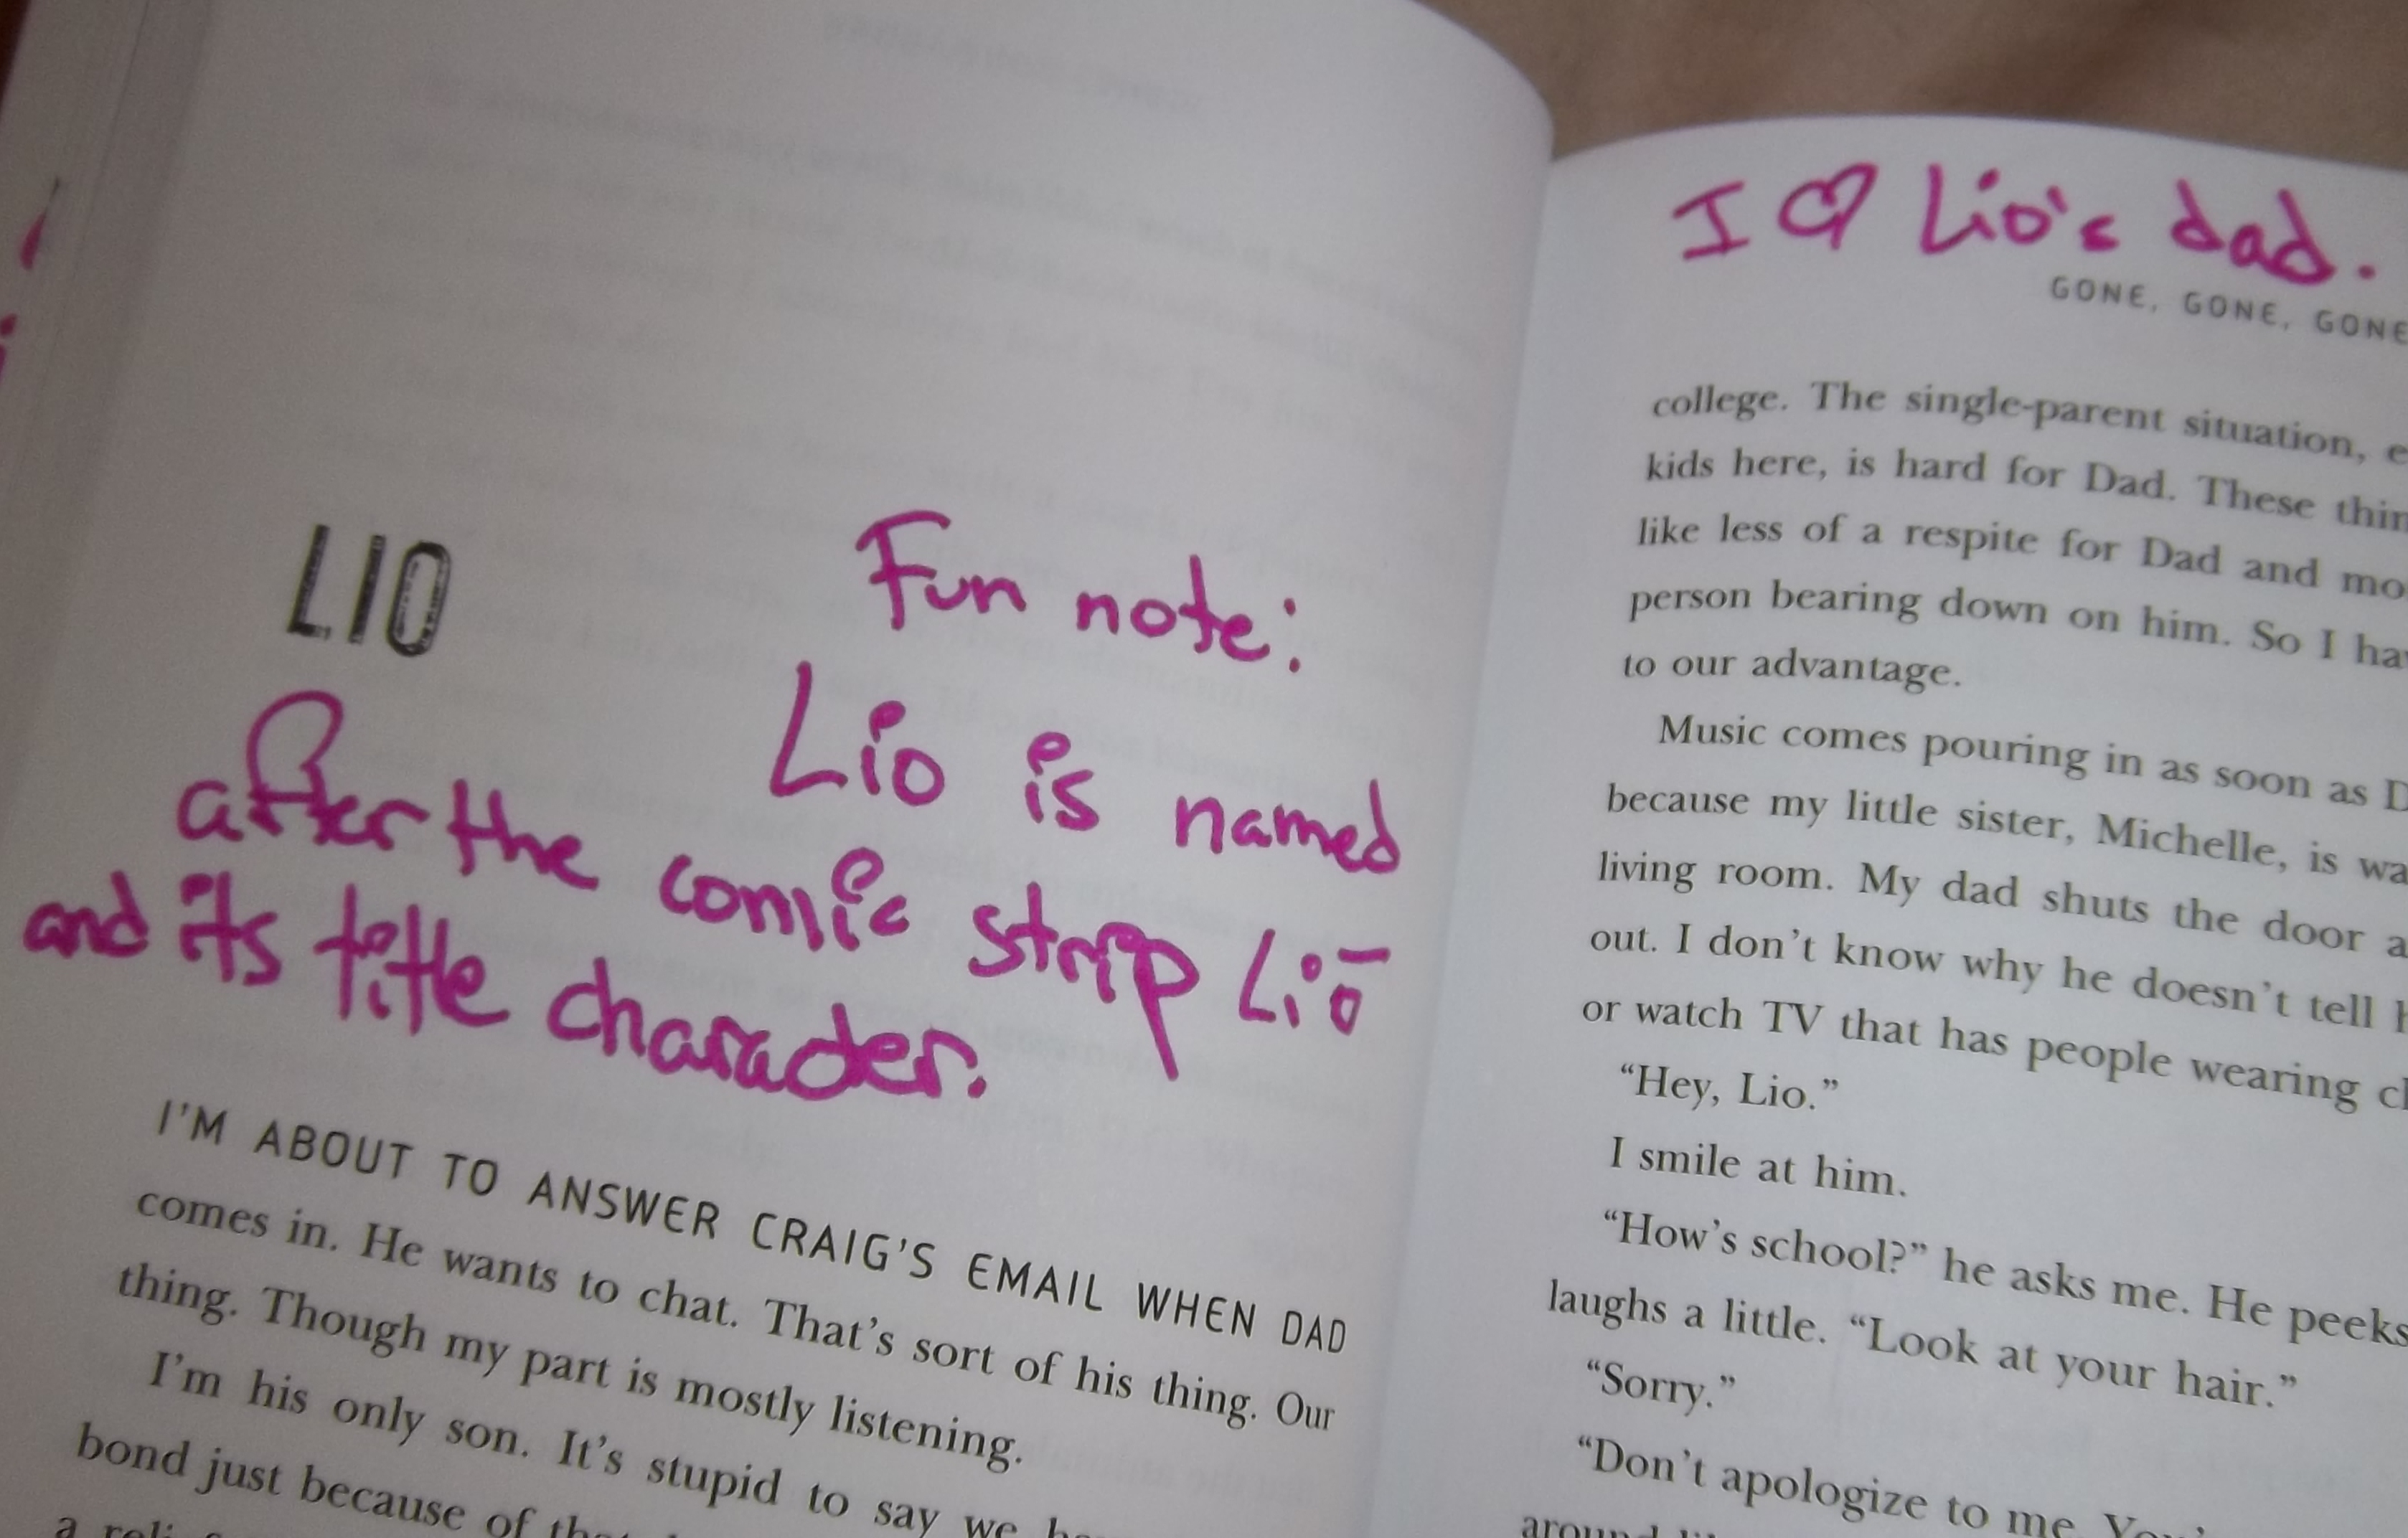 LIO
Fun note:
Lio is named
after the comic strip Liō
and its title character.
I'M ABOUT TO ANSWER CRAIG'S EMAIL WHEN DAD
comes in. He wants to chat. That's sort of his thing. Our
thing. Though my part is mostly listening.
I'm his only son. It's stupid to say we
bond just because of
a
I ♡ Lio's dad.
GONE, GONE, GONE
college. The single-parent situation,
kids here, is hard for Dad. These
like less of a respite for Dad and
person bearing down on him. So I
to our advantage.
Music comes pouring in as soon as
because my little sister, Michelle, is
living room. My dad shuts the door
out. I don't know why he doesn't tell
or watch TV that has people wearing
"Hey, Lio."
I smile at him.
"How's school?" he asks me. He peeks
laughs a little. "Look at your hair."
"Sorry."
"Don't apologize to me.
around